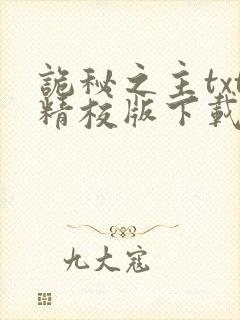 詭秘之主txt
精校版下載
九大寇